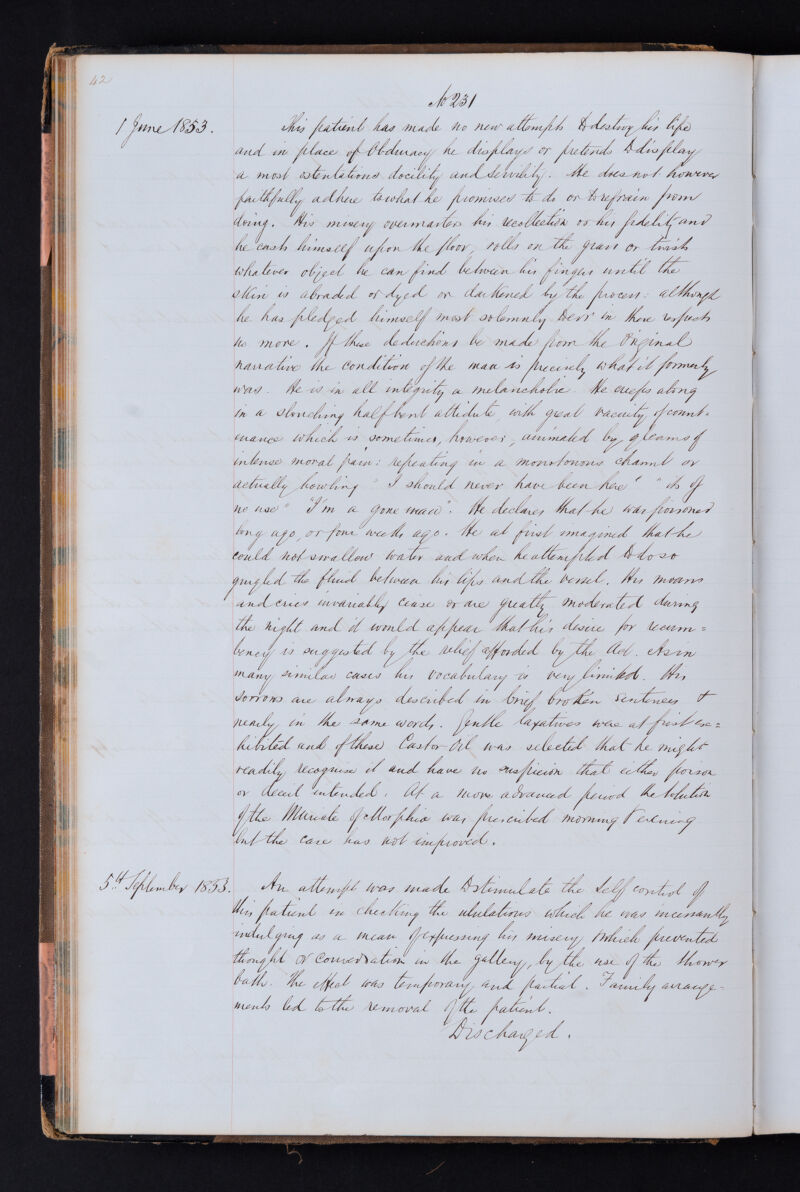 42
No 231
1 June 1853. This patient has made no new attempts to destroy his life
and in place of Obduracy he displays or pretends to display
a most ostentatious docility and servility. He does not however
faithfully adhere to what he promises to do or to refrain from
doing. His misery overmasters his recollection or his fidelity and
he casts himself upon the floor, rolls on the grass or twists
whatever object he can find between his fingers until the
skin is abraded or dyed or darkened by the process: although
he has pledged himself most solemnly to err in these respects
no more. If these deductions be made from the Original
narrative the condition of the man is precisely what it formerly
was. He is in all integrity a melancholic. He creeps along
in a slouching half bent attitude, with great vacuity of count-
enance which is sometimes, however, animated by gleams of
intense moral pain: repeating in a monotonous chaunt or
actually howling "I should never have been here" "it's of
no use" "I'm a gone man". He declares that he was poisoned
long ago, or four weeks ago. He at first imagined that he
could not swallow water and when he attempted to do so
gurgled the fluid between his lips and the vessel. His moans
and cries invariably cease or are greatly moderated during
the night and it would appear that his desire for recum=
bency is suggested by the relief afforded by the Act. As in
many similar cases his vocabulary is very limited. His
sorrows are always described in brief, broken sentences &
nearly in the same words. Gentle laxatives were at first ex=
hibited and of these Castor Oil was selected that he might
readily recognise it and have no suspicion that either poison
or deceit intended. At a more advanced period the solution
of the Muriate of Morphia was prescribed morning & evening
but the case has not improved.
5th September 1853. An attempt was made to stimulate the self control of
this patient in checking the ululations which he was incessantly
indulging as a mean of expressing his misery & which prevented
thought or conversation in the gallery, by the use of the shower
bath. The effect was temporary and partial. Family arrange-
ments led to the removal of the patient.
Discharged.